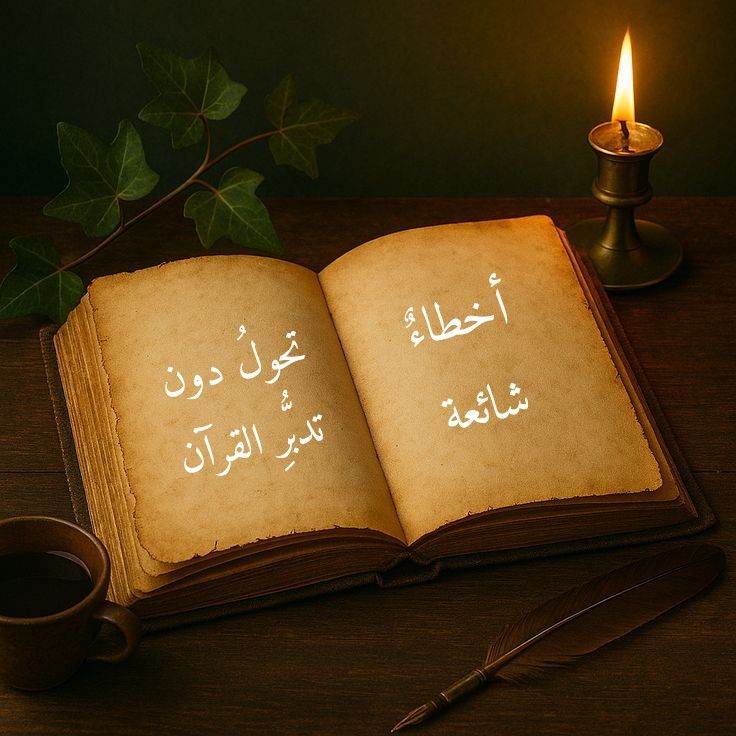 أخطاءٌ
شائعة
تحولُ دون
تدبُّرِ القرآن